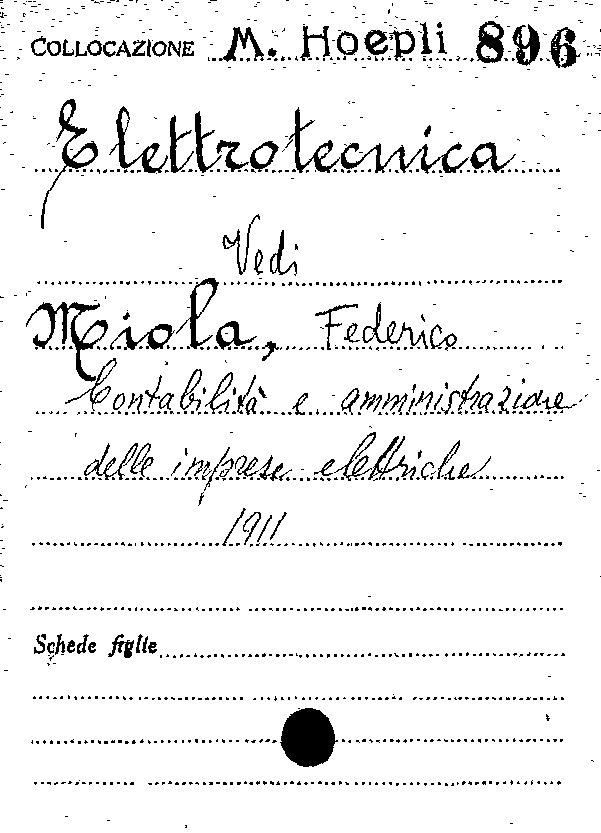 COLLOCAZIONE M. Hoepli 896
Elettrotecnica
Vedi
Miola, Federico
Contabilità e amministrazione
delle imprese elettriche
1911
Schede figlie